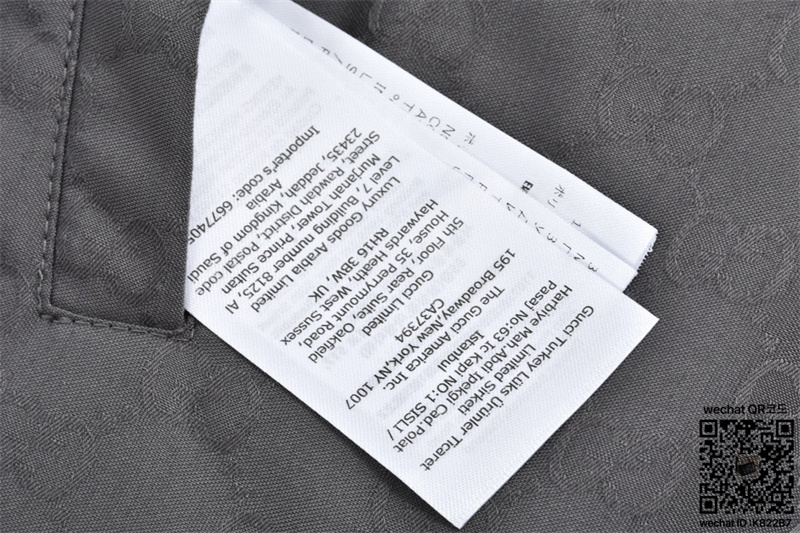 Gucci Turkey Lüks Ürünler Ticaret
Limited Sirketi
Harbiye Mah.Abdi Ipekçi Cad.Polat
Pasaj No:63 Ic Kapi NO:1 SISLI /
Istanbul
The Gucci America Inc.
195 Broadway,New York,NY 1007
CA37394
Gucci Limited
5th Floor, Rear Suite, Oakfield
House, 35 Perrymount Road,
Haywards Heath, West Sussex
RH16 3BW, UK
Luxury Goods Arabia Limited
Level 7, Building number 8125, Al
Murjanah Tower, Prince Sultan
Street, Rawdah District, Postal code
23435, Jeddah, Kingdom of Saudi
Arabia
Importer's code: 6677405
wechat QR코드
wechat ID :K822B7